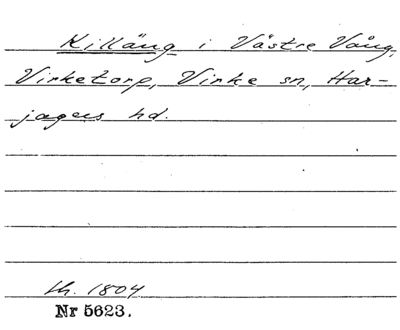 Killäng i Västre Vång,
Virketorp, Virke sn, Har-
jagers hd.
th. 1804
Nr 5623.